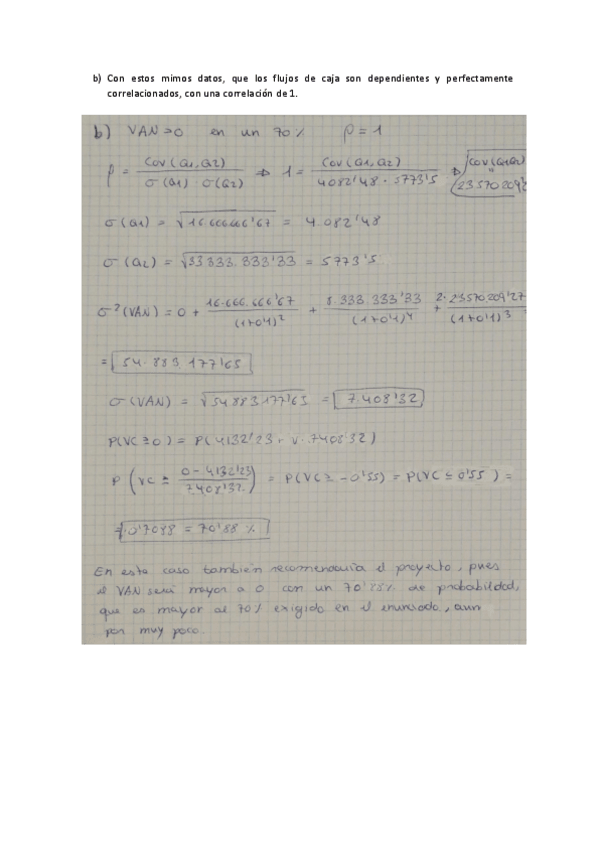 b) Con estos mimos datos, que los flujos de caja son dependientes y perfectamente
correlacionados, con una correlación de 1.
b) VAN>0 en un 70% ρ = 1
ρ = Cov(Q1,Q2) / σ(Q1) · σ(Q2) ⇒ 1 = Cov(Q1,Q2) / 4082'48 · 5773'5 ⇒ Cov(Q1Q2) = 23570209'2
σ(Q1) = √16.666.666'67 = 4.082'48
σ(Q2) = √33.333.333'33 = 5773'5
σ²(VAN) = 0 + 16.666.666'67 / (1+0'1)² + 8.333.333'33 / (1+0'1)⁴ + 2·23570209'27 / (1+0'1)³
= 54.883.177'65
σ(VAN) = √54883177'65 = 7.408'32
P(VC≥0) = P(4132'23 7408'32)
P (VC ≥ 0-4132'23 / 7408'32) = P(VC≥-0'55) = P(VC≤0'55) =
= 0'7088 = 70'88%
En este caso también recomendaría el proyecto, pues
el VAN será mayor a 0 con un 70'88% de probabilidad,
que es mayor al 70% exigido en el enunciado, aun
por muy poco.